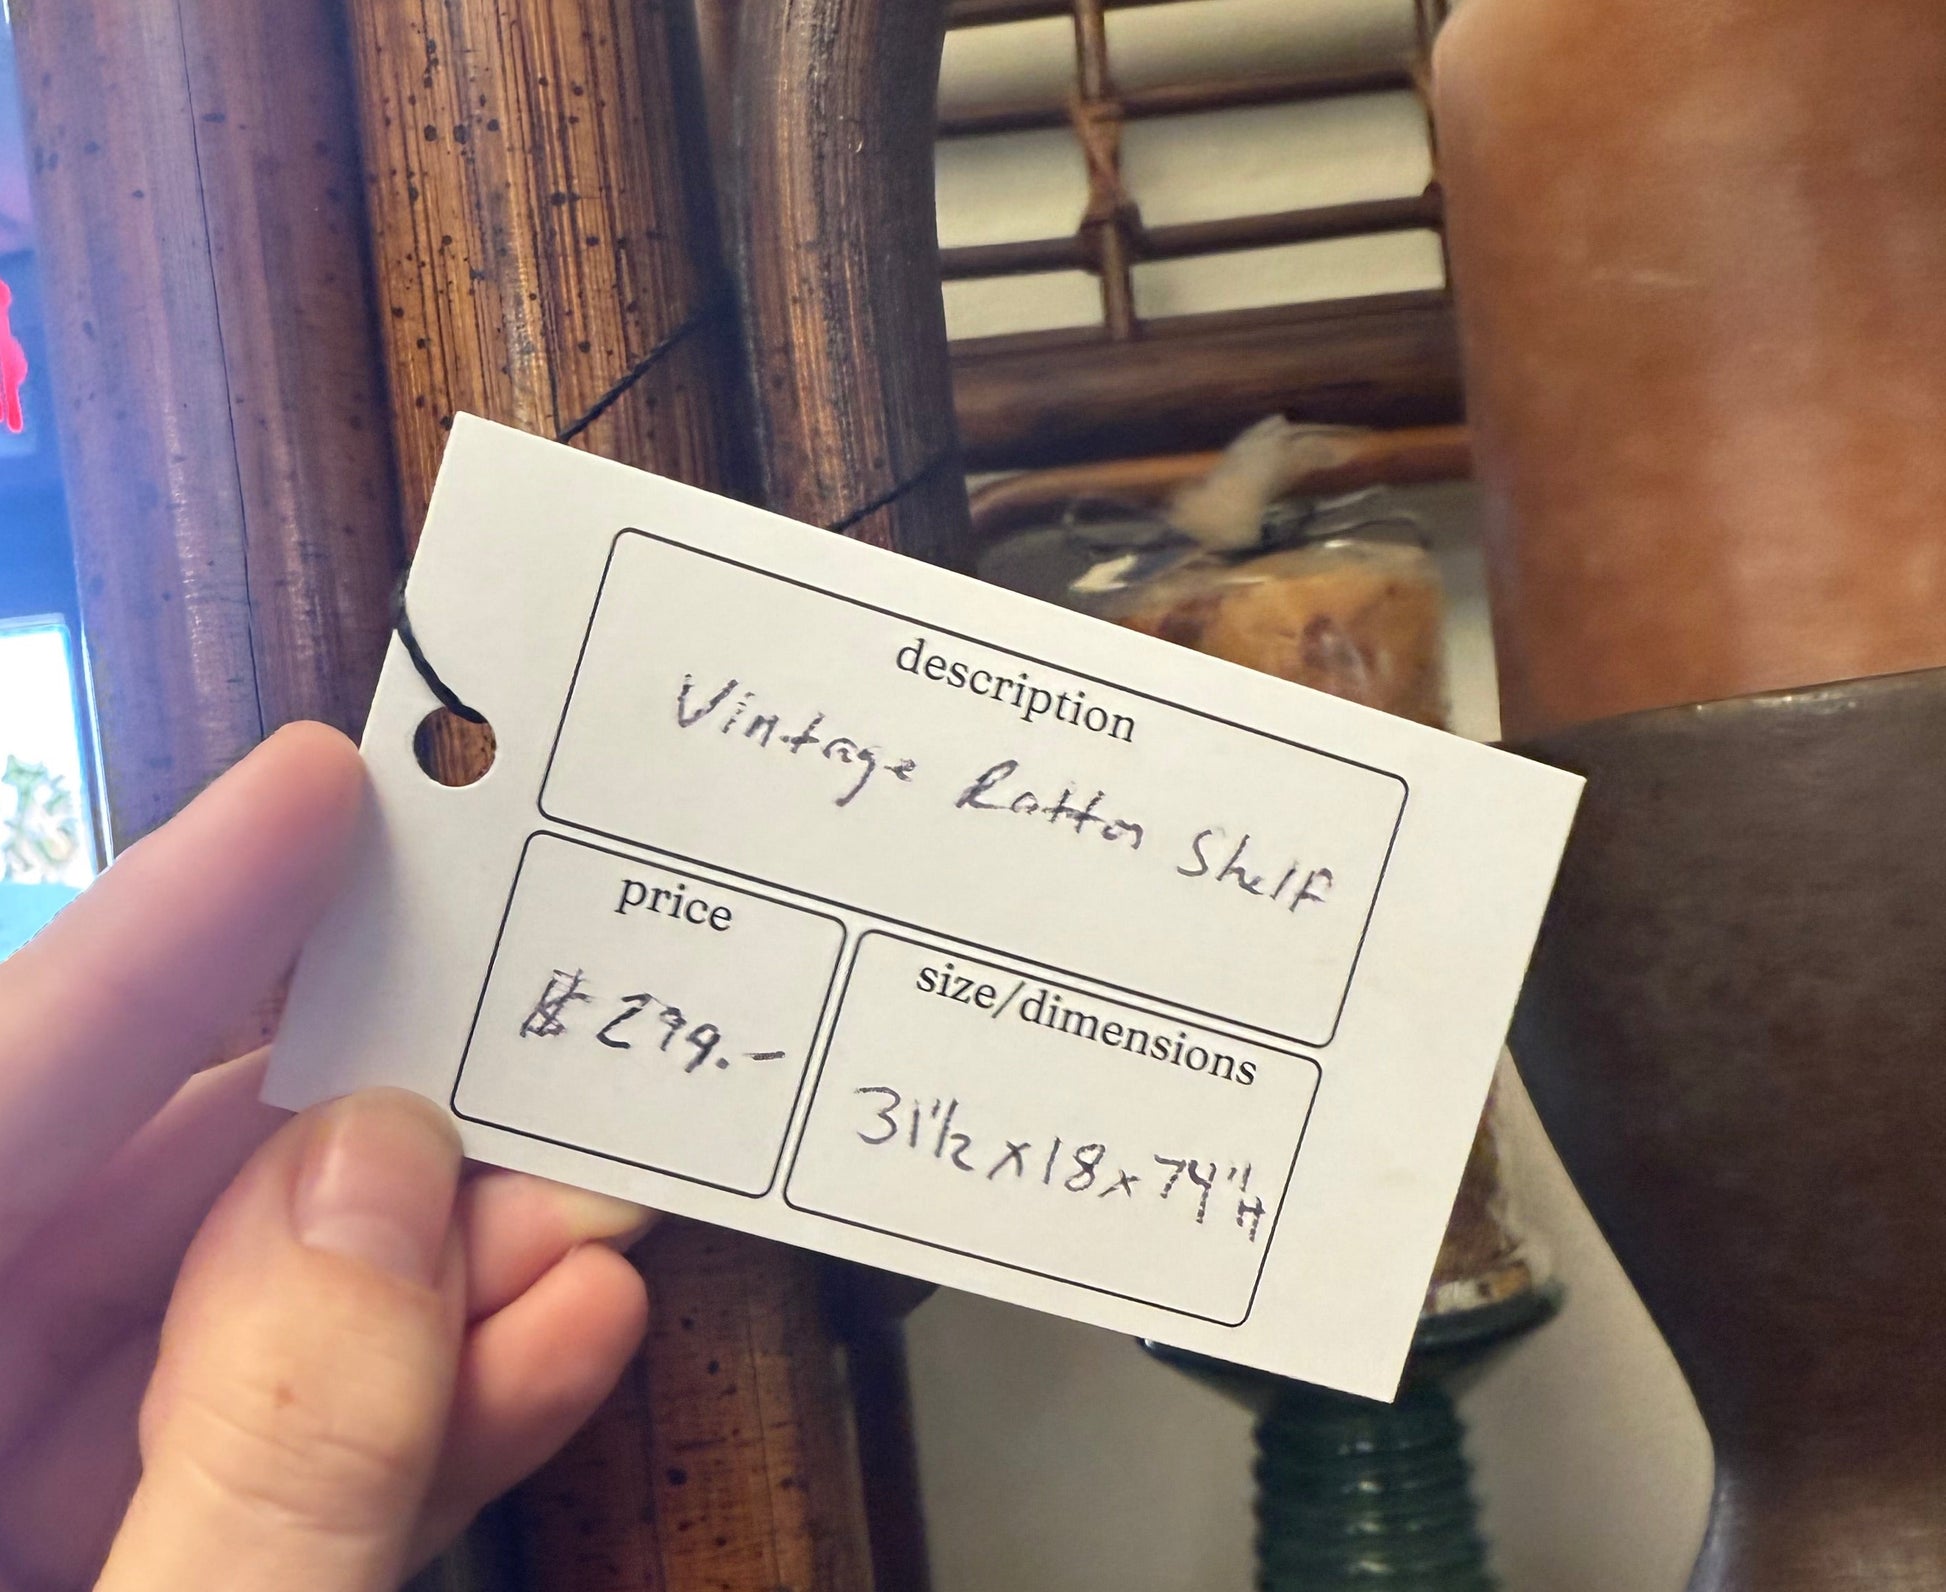 description
Vintage Ratton Shelf
price
$299.-
size/dimensions
31 1/2 x 18 x 74"H